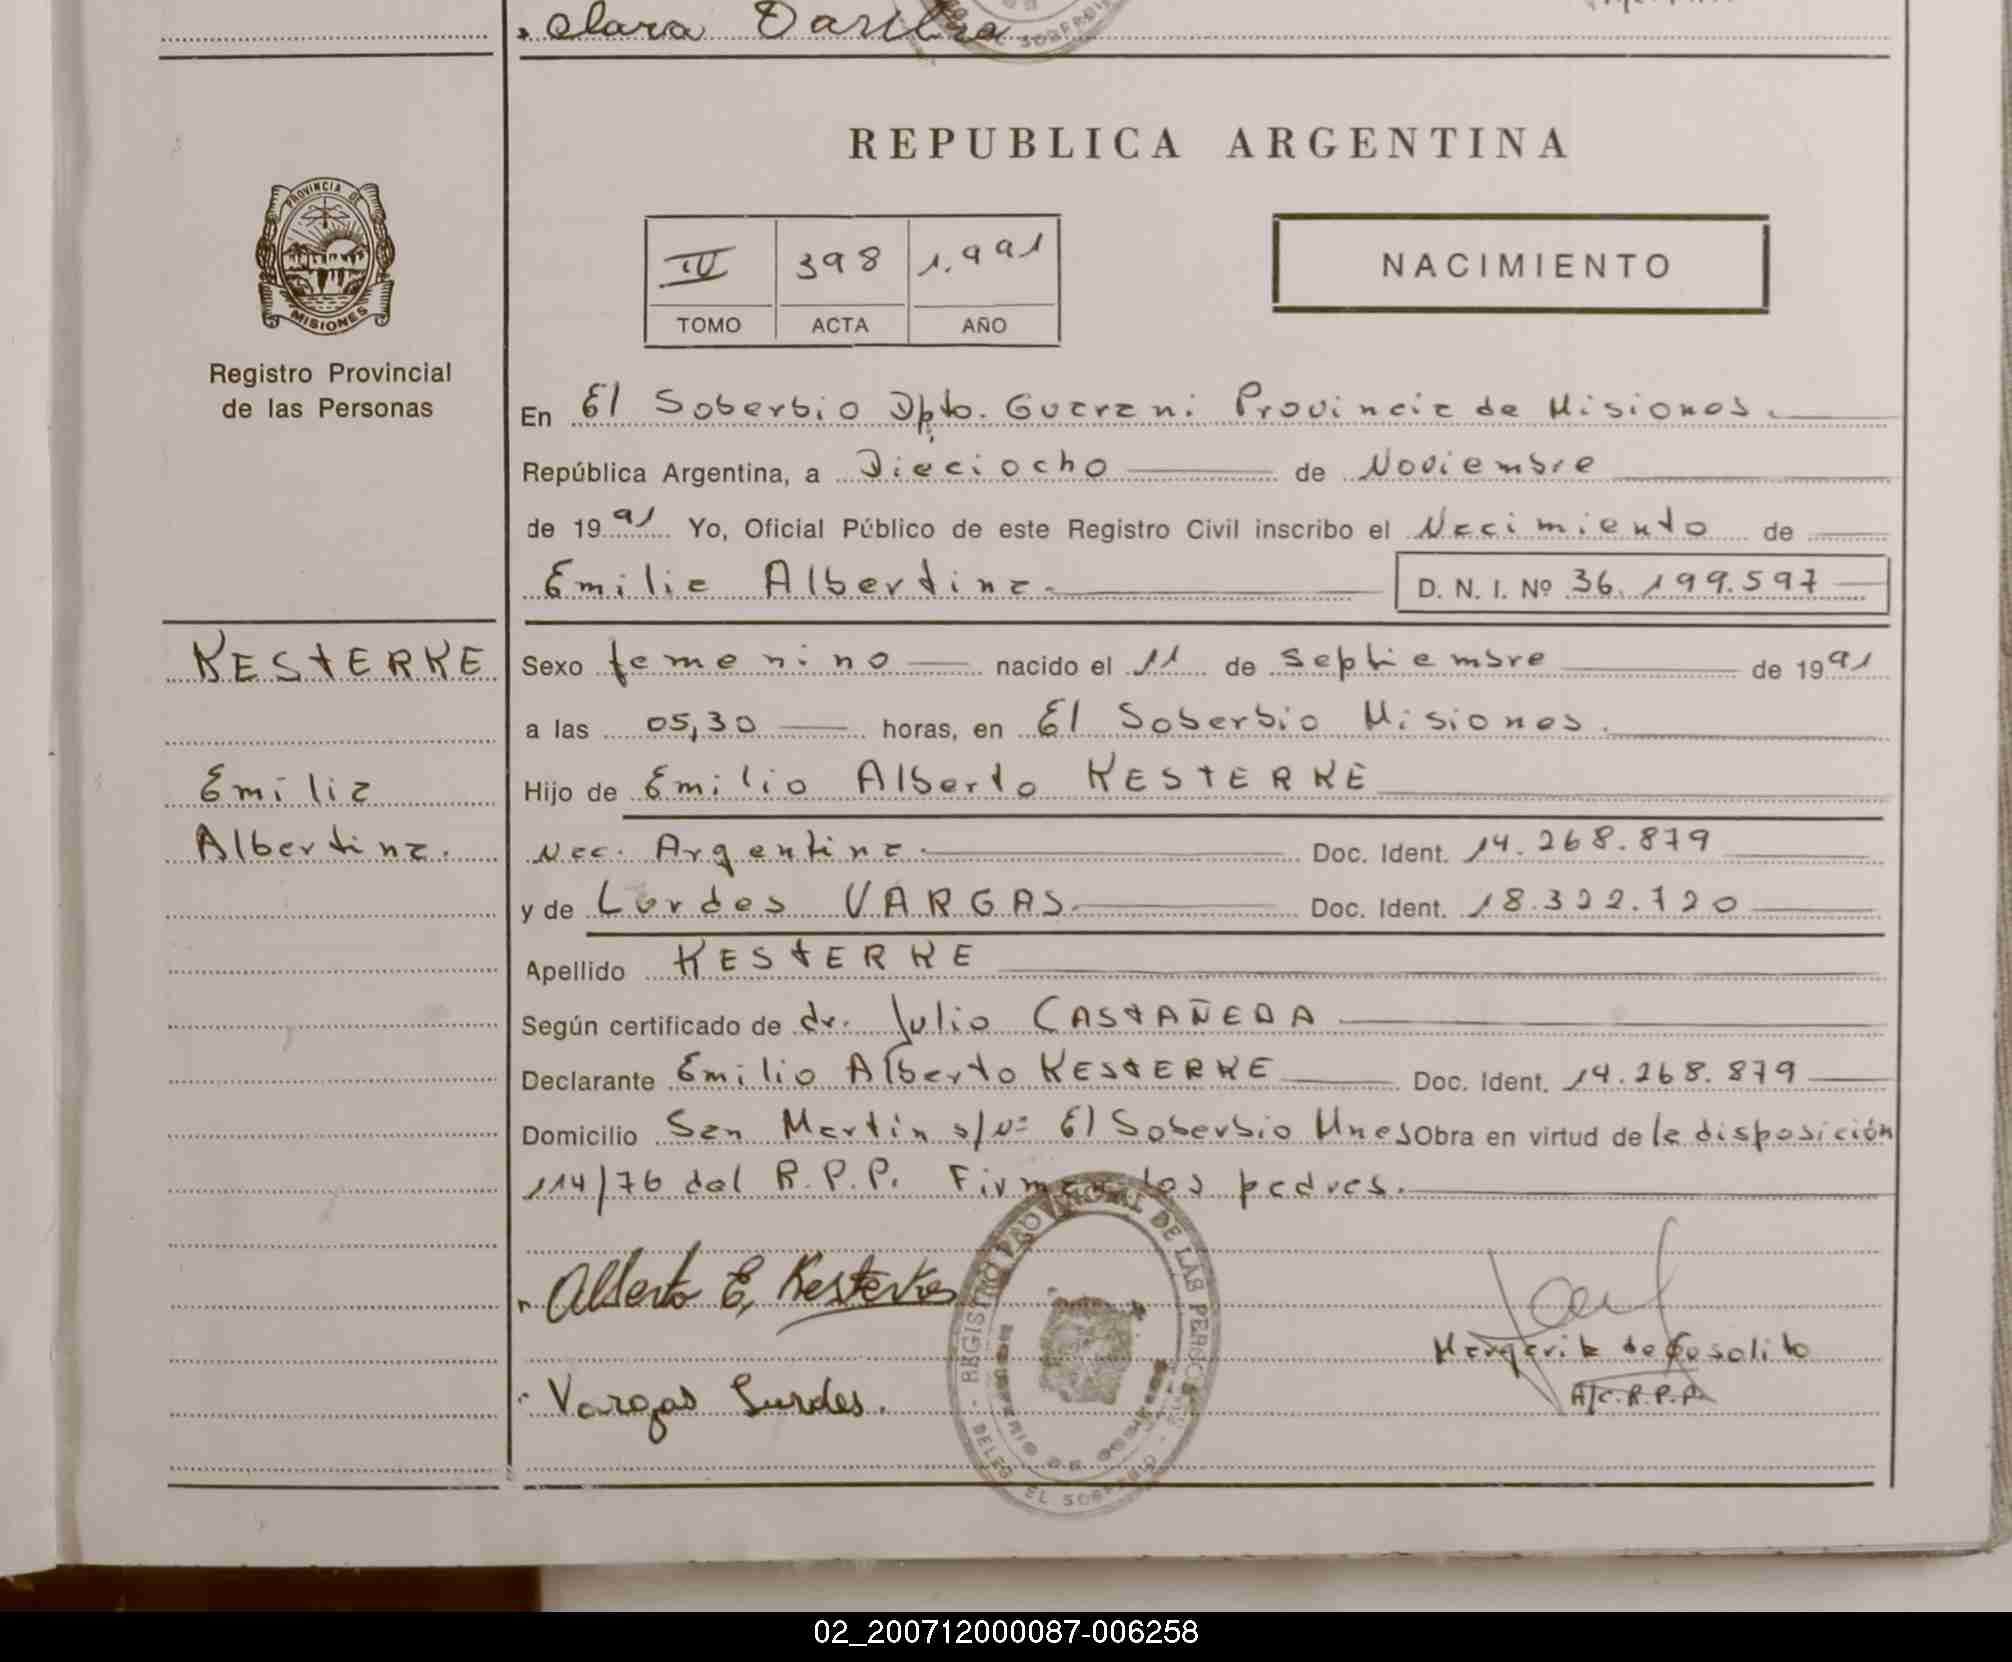 Clara Dasilva
REPUBLICA ARGENTINA
PROVINCIA DE
MISIONES
Registro Provincial
de las Personas
IV 398 1.991
TOMO ACTA AÑO
NACIMIENTO
En El Soberbio Dpto. Guarani Provincia de Misiones.
República Argentina, a Dieciocho de Noviembre
de 1991 Yo, Oficial Público de este Registro Civil inscribo el Nacimiento de
Emilia Albertina. D. N. I. Nº 36.199.597
KESTERKE
Emilia
Albertina.
Sexo femenino nacido el 11 de Septiembre de 1991
a las 05,30 horas, en El Soberbio Misiones.
Hijo de Emilio Alberto KESTERKE
Nac. Argentina. Doc. Ident. 14.268.879
y de Lurdes VARGAS. Doc. Ident. 18.322.720
Apellido KESTERKE
Según certificado de dr. Julio CASTAÑEDA
Declarante Emilio Alberto KESTERKE Doc. Ident. 14.268.879
Domicilio San Martin s/nº El Soberbio Mnes Obra en virtud de la disposición
114/76 del R.P.P. Firman los padres.
Alberto E, Kesterke
Vargas Lurdes.
REGISTRO PROVINCIAL DE LAS PERSONAS
DELEG EL SOBERBIO
Margarita de
A/C.R.P.P.
02_200712000087-006258